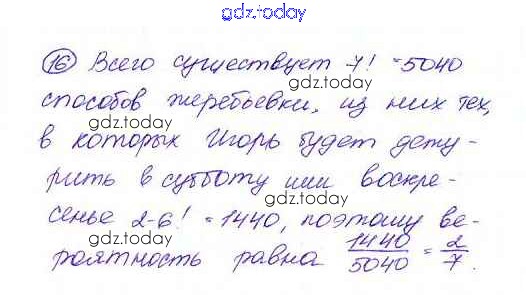 gdz.today
16 Всего существует 7! = 5040
gdz.today
способов жеребьевки, из них тех,
gdz.today
в которых Игорь будет дежу-
gdz.today
рить в субботу или воскре-
gdz.today
сенье 2·6! = 1440, поэтому ве-
gdz.today
роятность равна 1440/5040 = 2/7.